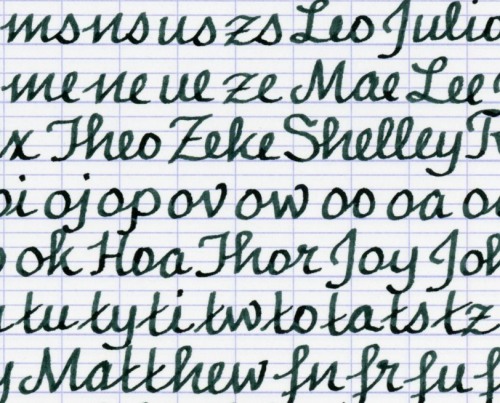 ms ns us zs Leo Julio
me ne ue ze Mae Lee
x Theo Zeke Shelley
oi oj op ov ow oo oa
ok Hoa Thor Joy
tu ty ti tw to ta ts tz
y Matthew fn fr fu f